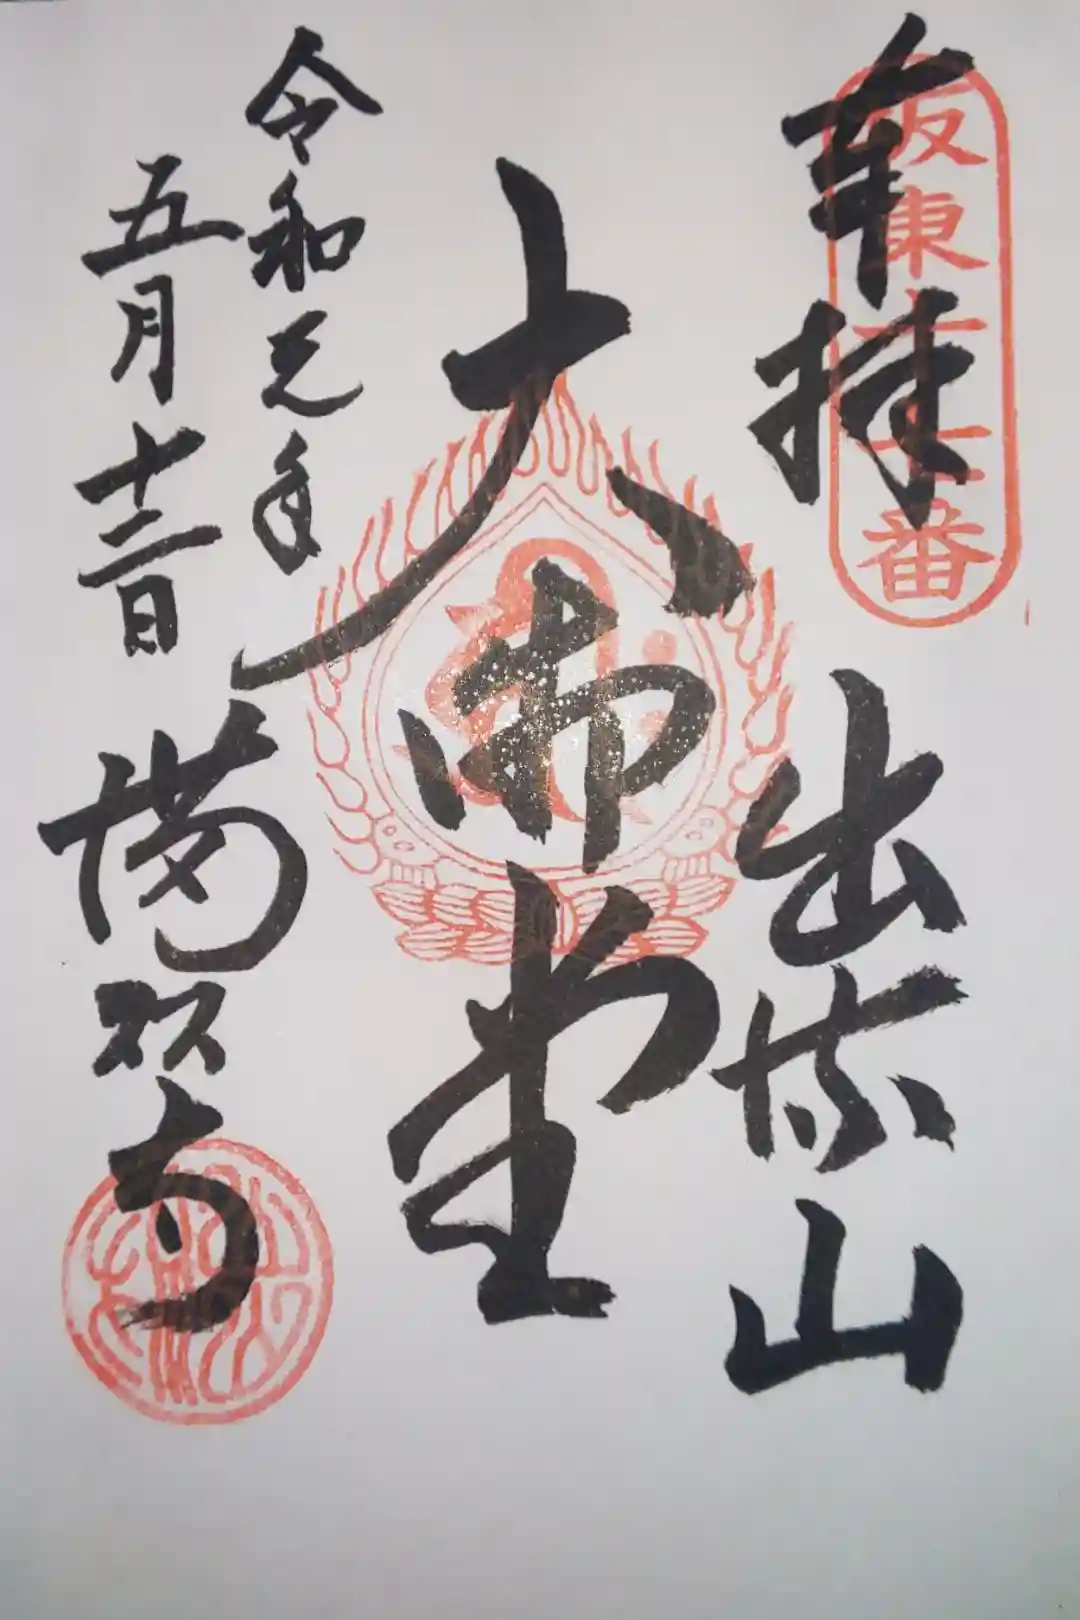 奉拝
坂東十七番
出流山
大御堂
令和元年
五月十二日
満願寺